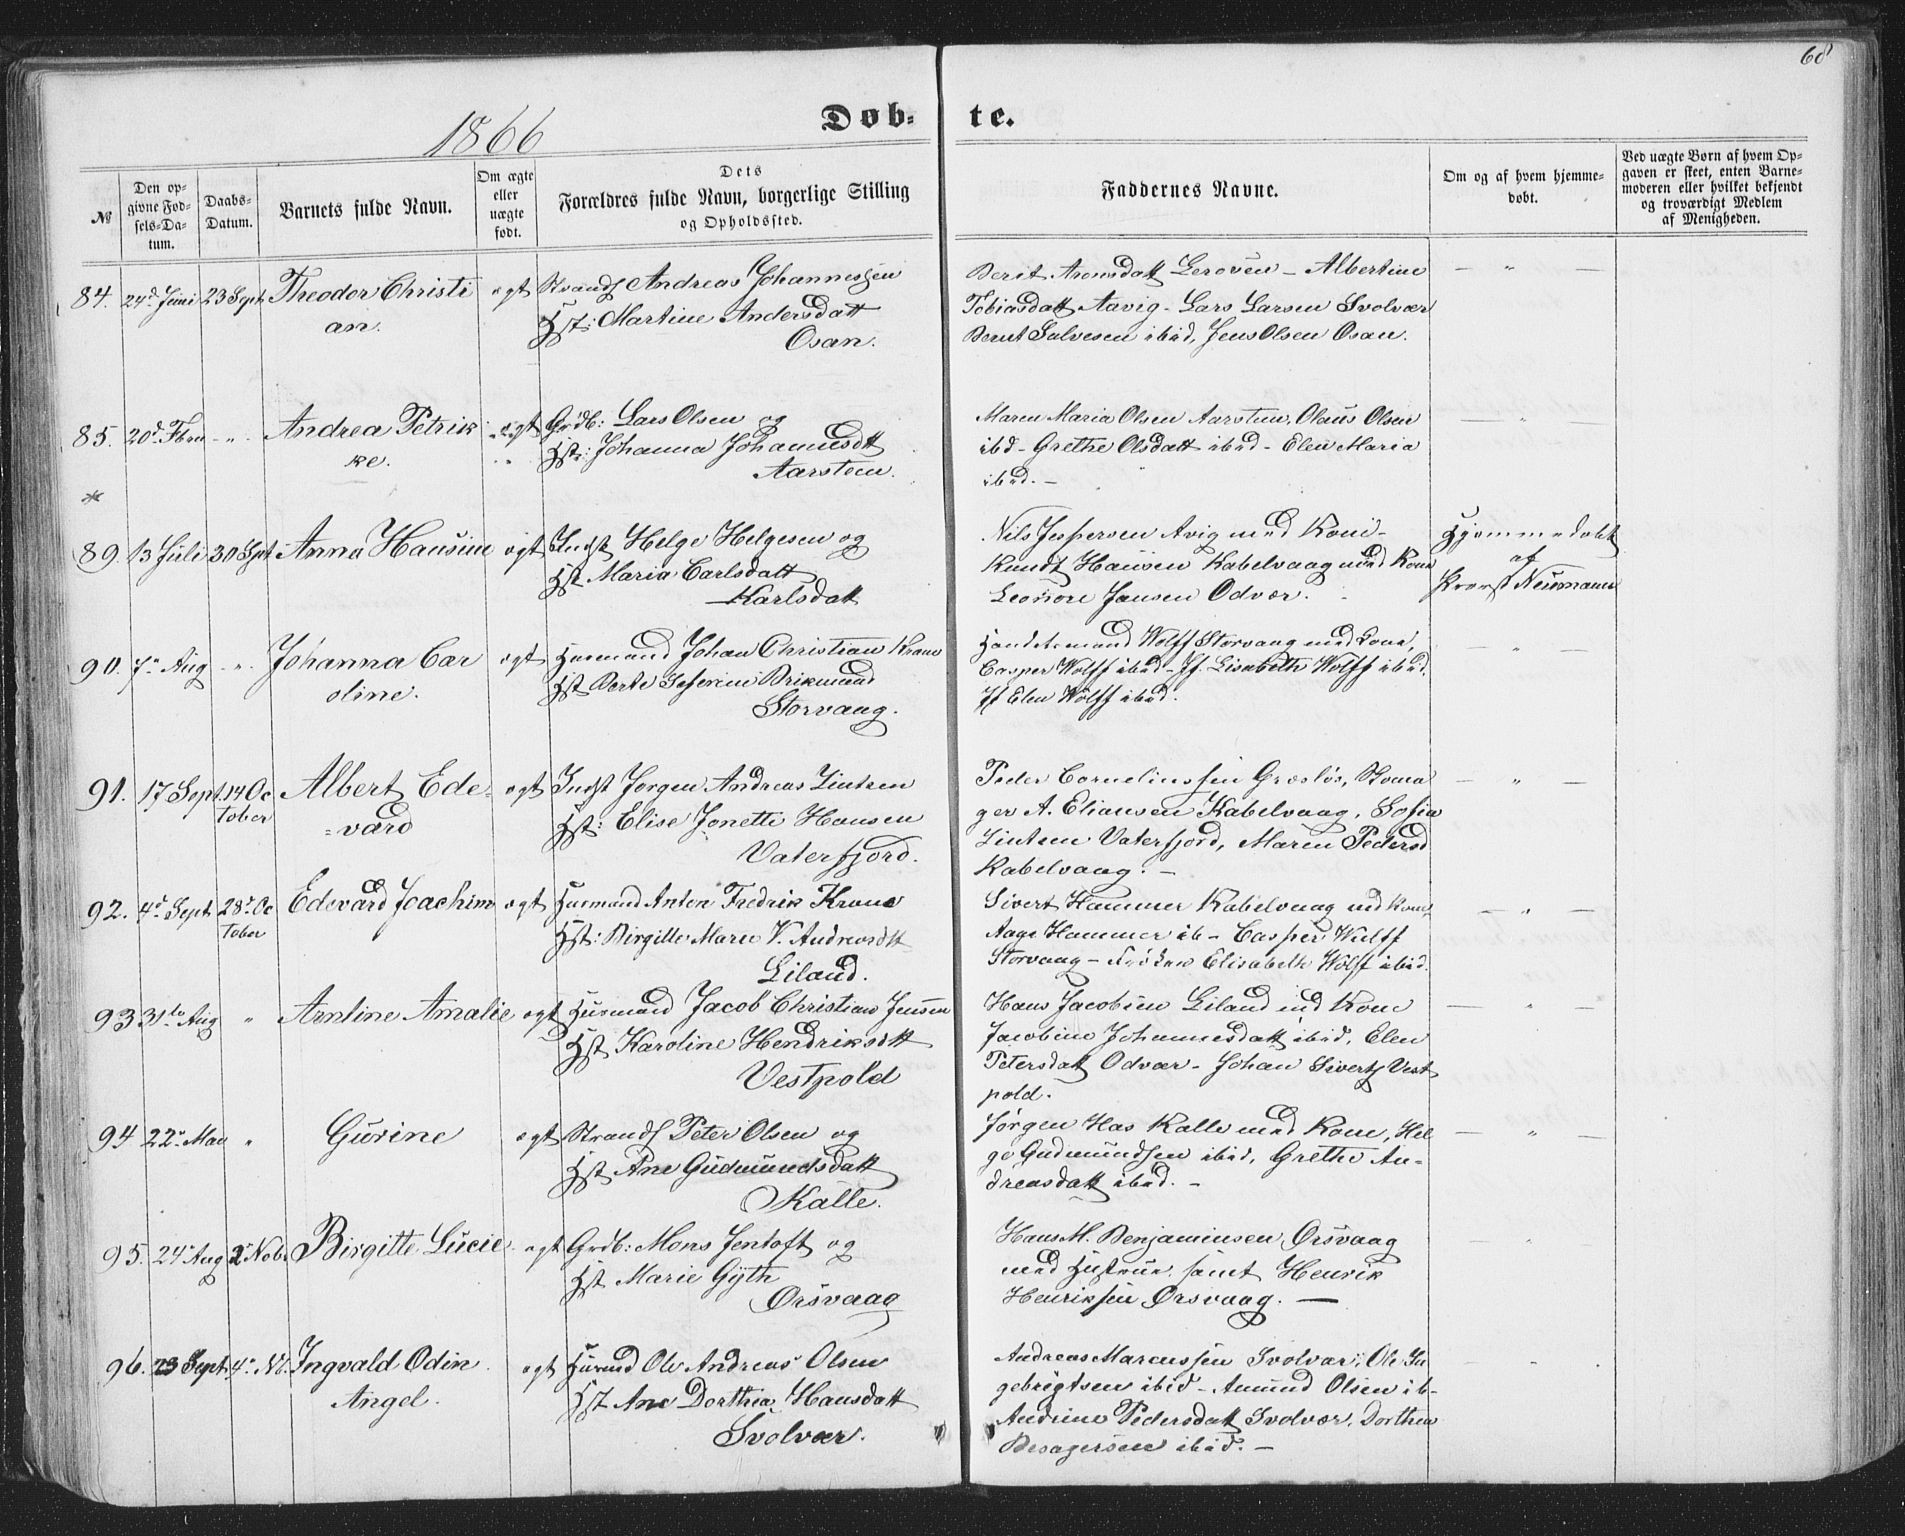 68
1866
Døb-
te.
№
Den opgivne Fødsels-Datum.
Daabs-Datum.
Barnets fulde Navn.
Om ægte eller uægte født.
Dets Forældres fulde Navn, borgerlige Stilling og Opholdssted.
Faddernes Navne.
Om og af hvem hjemmedøbt.
Ved uægte Børn af hvem Opgaven er skeet, enten Barnemoderen eller hvilket bekjendt og troværdigt Medlem af Menigheden.
84. 24d Juni 23 Sept Theodor Christi ægt Strands Andreas Johannessen
an. Hst: Martine Andersdatt
Osan.
Berit Aronsdatt Lerosen - Albertine
Tobiasdatt Aavig - Lars Larsen Svolvær
Bernt Salvesen ibid, Jens Olsen Osan.
— " —
85. 20d Fbru - " - Andrea Petrik ægt Grdb: Lars Olsen og
ke. Hst: Johanna Johannesdtt
Aarsteen.
Maren Maria Olsen Aarsteen, Olaus Olsen
ibd - Grethe Olsdatt ibid - Elen Maria
ibid. —
— " —
*
89. 13 Juli 30 Spt Anna Hansine ægt Indst Helge Helgesen og
Hst Maria Carlsdatt
Karlsdatt
Nils Jespersen Avig med Kone -
Knudt Hansen Kabelvaag med Kone
Leonore Jansen Odvær.
Hjemmedøbt
af
Provst Neumann
90. 7de Aug - " - Johanna Car ægt Huusmand Johan Christian Krane
oline. Hst Berte Seferine Brikmend
Storvaag.
Handelsmand Wolff Storvaag med Kone,
Casper Wolff ibid - Jf. Lisabeth Wolff ibid.
Jf Elen Wolff ibid.
— " —
91. 17 Sept 14 Oc Albert Ede- ægt Indst Jørgen Andreas Lintsen
tober =vard Hst: Elise Jonette Hansen
Vaterfjord.
Peder Corneliussen Græsløs, Skoma
ger A. Eliassen Kabelvaag, Sofia
Lintsen Vaterfjord, Maren Pedersd
Kabelvaag. —
— " —
92. 4d Sept 28d Oc Edevard Joachim ægt Huusmand Anton Fredrik Krane
tober Hst: Birgitte Maren V. Andreasdtt
Liland.
Sivert Hammer Kabelvaag med Kone,
Aage Hammer ib - Casper Wulff
Storvaag - Frøken Elisabeth Wolff ibid.
— " —
93 31te Aug " Arntine Amalie ægt Huusmand Jacob Christian Jensen
Hst Karoline Hendriksdtt
Vestpold
Hans Jacobsen Liland md Kone
Jacobine Johannesdatt ibid, Elen
Petersdatt Odvær - Johan Siverts Vest
pold.
— " —
94 22de Mai " Gurine ægt Strands Peter Olsen og
Hst Ane Gudmundsdatt
Kalle.
Jørgen Has Kalle med Kone, Hel
ge Gudmundsen ibid, Grethe An-
dreasdatt ibid. -
— " —
95. 24de Aug 2 Nobr Birgitte Lucie ægt Grdb: Mons Jentoft og
Hst Marie Gyth
Ørsvaag
Hans M. Benjaminsen Ørsvaag
med Hustrue, samt Henrik
Henriksen Ørsvaag. —
96. 23 Sept 4de Nb. Ingvald Odin ægt Huusmd Ole Andreas Olsen
Angel. Hst Ane Dorthea Hansdatt
Svolvær.
Andreas Marcussen Svolvær, Ole In
gebrigtsen ibid - Amund Olsen ib-
Andrine Pedersdatt Svolvær, Dorthea
ibid. —